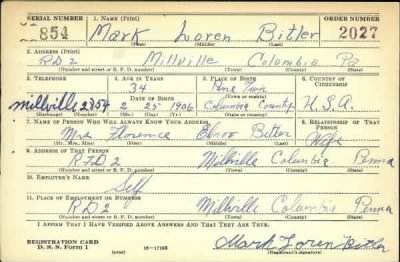 SERIAL NUMBER
1. NAME (Print)
ORDER NUMBER
854
Mark Loren Bitler
2027
(First) (Middle) (Last)
2. ADDRESS (Print)
RD2 Millville Columbia Pa
(Number and street or R. F. D. number) (Town) (County) (State)
3. TELEPHONE
4. AGE IN YEARS
5. PLACE OF BIRTH
6. COUNTRY OF CITIZENSHIP
34
Pine Twp
DATE OF BIRTH
(Town or county)
Millville
2 25 1906
Columbia County
U.S.A.
(Exchange) (Number)
(Mo.) (Day) (Yr.)
(State or country)
7. NAME OF PERSON WHO WILL ALWAYS KNOW YOUR ADDRESS
8. RELATIONSHIP OF THAT PERSON
Mrs Florence Bitler
Wife
(Mr., Mrs., Miss) (First) (Middle) (Last)
9. ADDRESS OF THAT PERSON
RFD2 Millville Columbia Penna
(Number and street or R. F. D. number) (Town) (County) (State)
10. EMPLOYER'S NAME
Self
11. PLACE OF EMPLOYMENT OR BUSINESS
RD2 Millville Columbia Penna
(Number and street or R. F. D. number) (Town) (County) (State)
I AFFIRM THAT I HAVE VERIFIED ABOVE ANSWERS AND THAT THEY ARE TRUE.
REGISTRATION CARD
D. S. S. Form 1
(over)
16-17105
Mark Loren Bitler
(Registrant's signature)